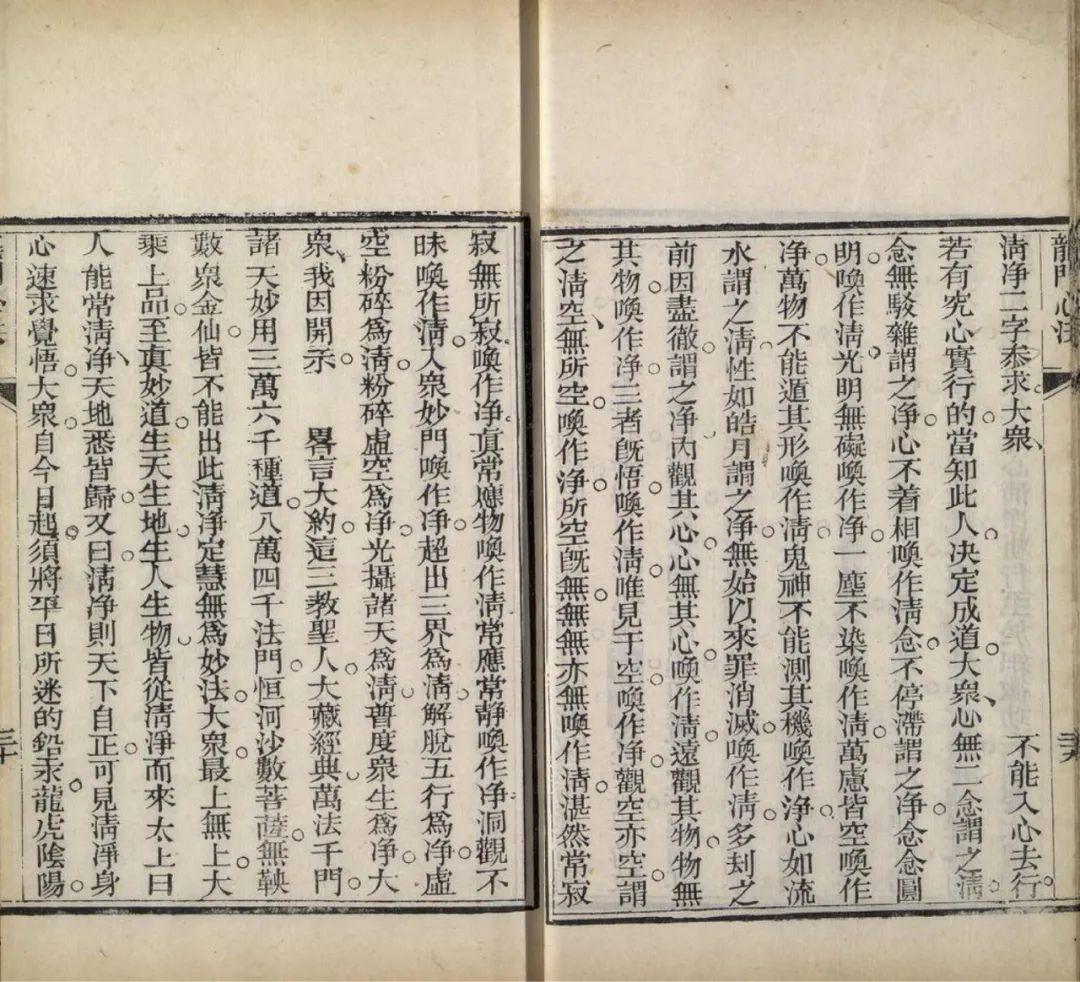 龍門心法
清淨二字叅求大衆　不能入心去行
若有究心實行的當知此人决定成道大衆心無二念謂之清
念無駁雜謂之净心不着相喚作清念不停滯謂之净念念圓
明喚作清光明無礙喚作净一塵不染喚作清萬慮皆空喚作
净萬物不能遁其形喚作清鬼神不能測其機喚作净心如流
水謂之清性如皓月謂之净無始以來罪消滅喚作清多刼之
前因盡徹謂之净內觀其心心無其心喚作清遠觀其物物無
其物喚作净三者旣悟喚作清唯見于空喚作净觀空亦空謂
之清空無所空喚作净所空旣無無無亦無喚作清湛然常寂
寂無所寂喚作净真常應物喚作清常應常靜喚作净洞觀不
昧喚作清入衆妙門喚作净超出三界爲清解脫五行爲净虛
空粉碎爲清粉碎虛空爲净光攝諸天爲清普度衆生爲净大
衆我因開示　畧言大約這三教聖人大藏經典萬法千門
諸天妙用三萬六千種道八萬四千法門恒河沙數菩薩無鞅
數衆金仙皆不能出此清净定慧無爲妙法大衆最上無上大
乘上品至真妙道生天生地生人生物皆從清淨而來太上曰
人能常清净天地悉皆歸又曰清淨則天下自正可見清淨身
心速求覺悟大衆自今日起須將平日所迷的鉛汞龍虎陰陽
三十